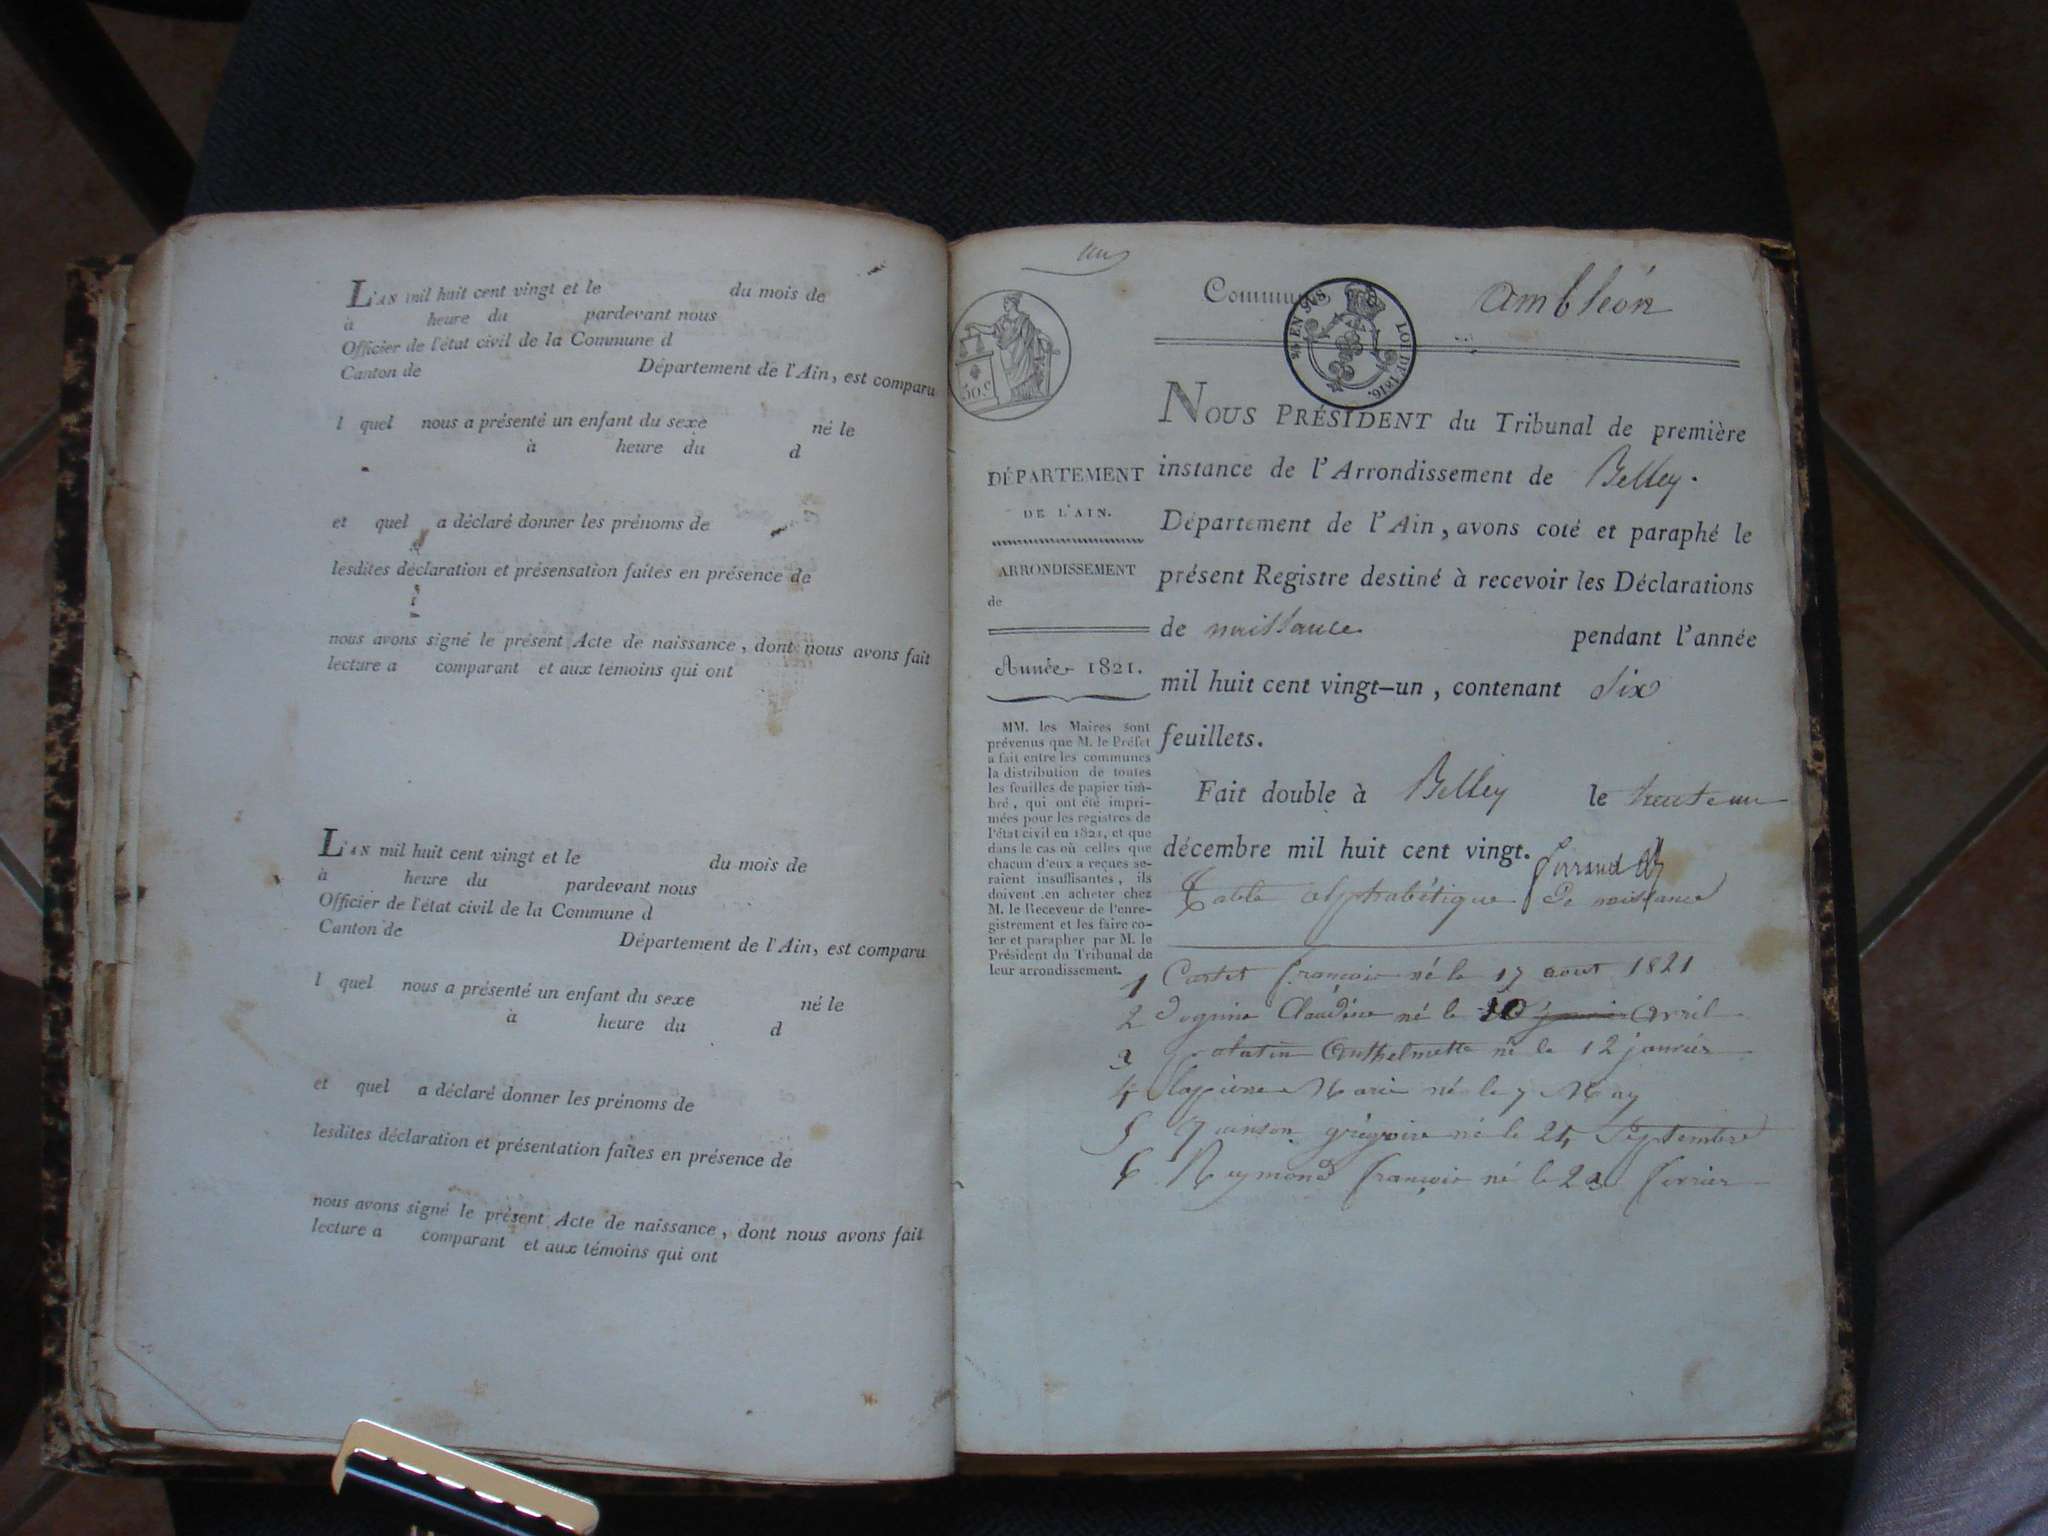 L'AN mil huit cent vingt et le du mois de
à heure du pardevant nous
Officier de l'état civil de la Commune d
Canton de Département de l'Ain, est comparu
l quel nous a présenté un enfant du sexe né le
à heure du d
et quel a déclaré donner les prénoms de
lesdites déclaration et présensation faites en présence de
nous avons signé le présent Acte de naissance, dont nous avons fait
lecture a comparant et aux témoins qui ont
L'AN mil huit cent vingt et le du mois de
à heure du pardevant nous
Officier de l'état civil de la Commune d
Canton de Département de l'Ain, est comparu
l quel nous a présenté un enfant du sexe né le
à heure du d
et quel a déclaré donner les prénoms de
lesdites déclaration et présentation faites en présence de
nous avons signé le présent Acte de naissance, dont nous avons fait
lecture a comparant et aux témoins qui ont
un
50.c
EN SUS
LOI DE 1816.
Commune ambléon
DÉPARTEMENT
DE L'AIN.
ARRONDISSEMENT
de
Année 1821.
MM. les Maires sont
prévenus que M. le Préfet
a fait entre les communes
la distribution de toutes
les feuilles de papier tim-
bré, qui ont été impri-
mées pour les registres de
l'état civil en 1821, et que
dans le cas où celles que
chacun d'eux a reçues se-
raient insuffisantes, ils
doivent en acheter chez
M. le Receveur de l'enre-
gistrement et les faire co-
ter et parapher par M. le
Président du Tribunal de
leur arrondissement.
NOUS PRÉSIDENT du Tribunal de première
instance de l'Arrondissement de Belley.
Département de l'Ain, avons coté et paraphé le
présent Registre destiné à recevoir les Déclarations
de naissance pendant l'année
mil huit cent vingt-un, contenant six
feuillets.
Fait double à Belley le trente un
décembre mil huit cent vingt.
Table alphabétique de naissance
1 Cartet françois né le 17 aout 1821
2 Claudine né le 10 avril
3 Anthelmette né le 12 janvier
4 Marie né le 7 May
5 Quinson grégoire né le 24 Septembre
6 Reymond françois né le fevrier